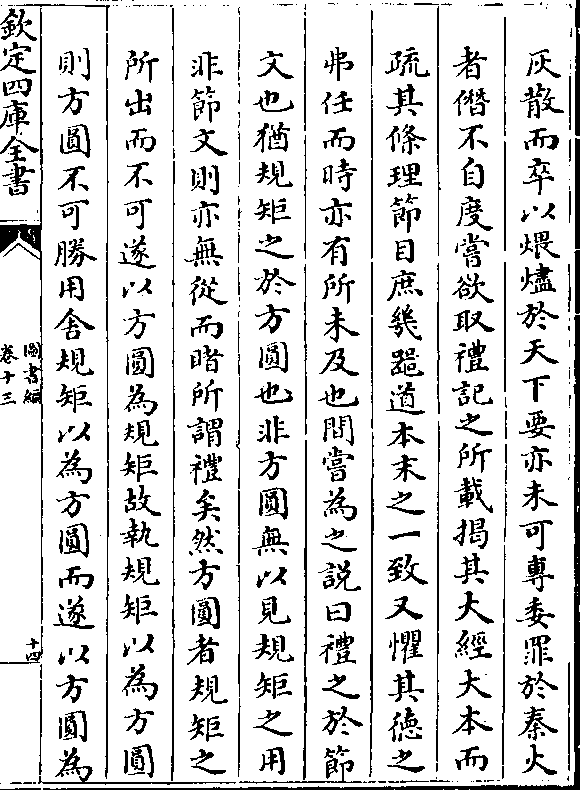 灰散而卒以煨燼於天下要亦未可專委罪於秦火
者僭不自度嘗欲取禮記之所載揭其大經大本而
疏其條理節目庶幾噐道本末之一致又懼其徳之
弗任而時亦有所未及也間嘗為之説曰禮之於節
文也猶規矩之於方圓也非方圓無以見規矩之用
非節文則亦無從而睹所謂禮矣然方圓者規矩之
所出而不可遂以方圓為規矩故執規矩以為方圓
則方圓不可勝用舍規矩以為方圓而遂以方圓為
欽定四庫全書
圖書編
卷十三
十四